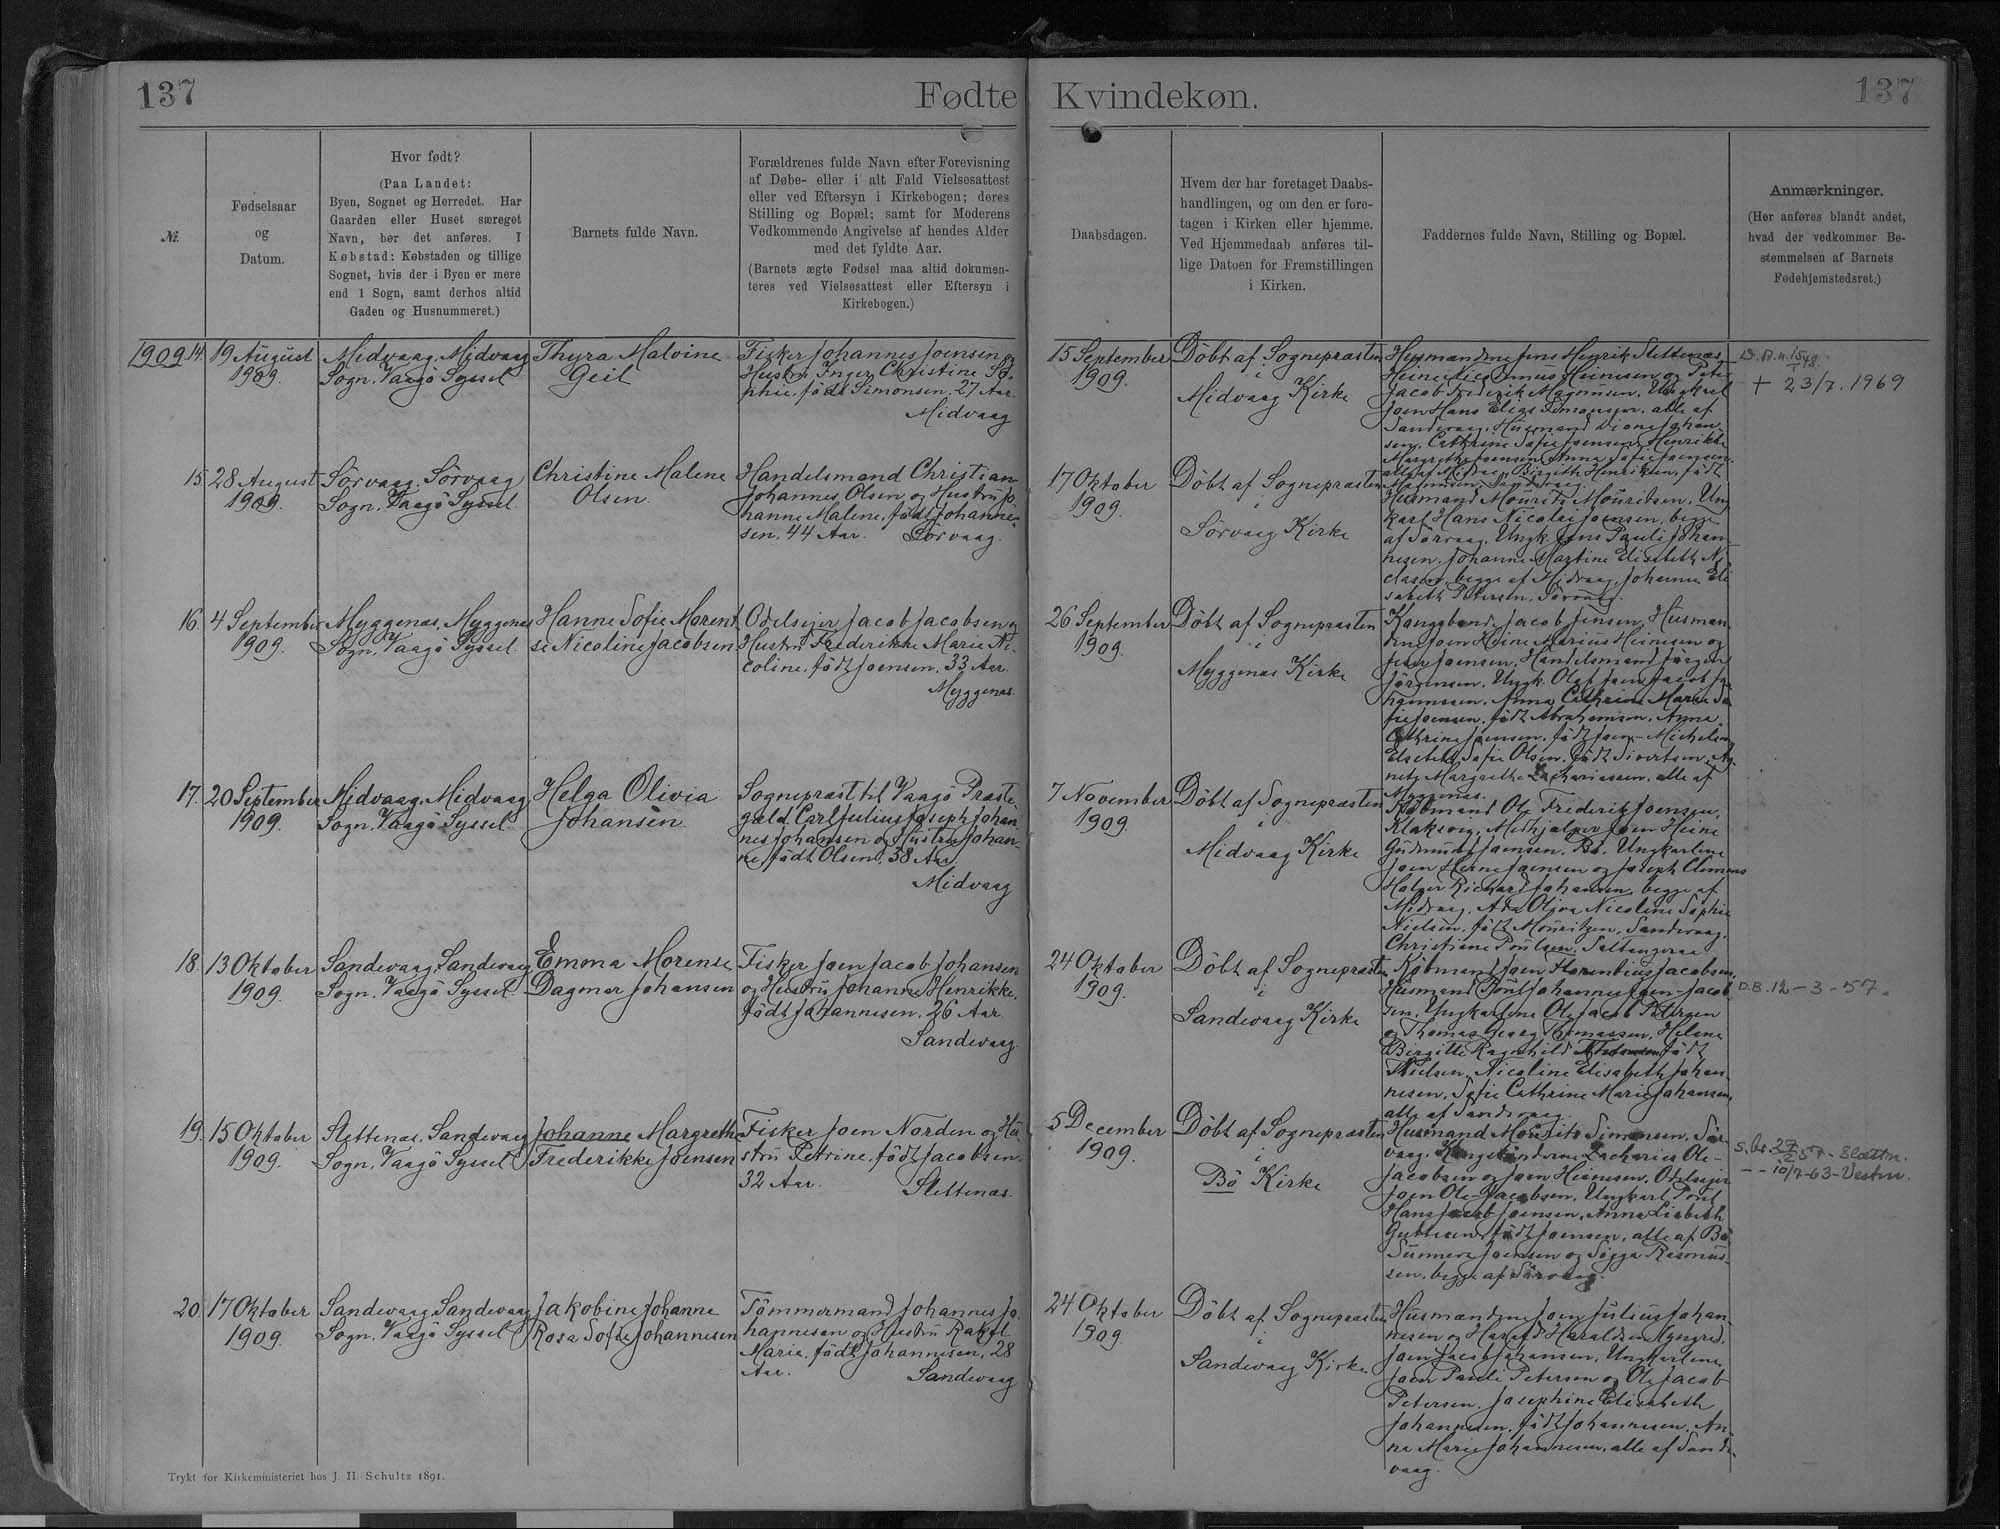 137
Fødte
Kvindekøn.
137
Nr.
Fødselsaar
og
Datum.
Hvor født?
(Paa Landet:
Byen, Sognet og Herredet. Har
Gaarden eller Huset særeget
Navn, bør det anføres. I
Købstad: Købstaden og tillige
Sognet, hvis der i Byen er mere
end 1 Sogn, samt derhos altid
Gaden og Husnummeret.)
Barnets fulde Navn.
Forældrenes fulde Navn efter Forevisning
af Døbe- eller i alt Fald Vielsesattest
eller ved Eftersyn i Kirkebogen; deres
Stilling og Bopæl; samt for Moderens
Vedkommende Angivelse af hendes Alder
med det fyldte Aar.
(Barnets ægte Fødsel maa altid dokumen-
teres ved Vielsesattest eller Eftersyn i
Kirkebogen.)
Daabsdagen.
Hvem der har foretaget Daabs-
handlingen, og om den er fore-
tagen i Kirken eller hjemme.
Ved Hjemmedaab anføres til-
lige Datoen for Fremstillingen
i Kirken.
Faddernes fulde Navn, Stilling og Bopæl.
Anmærkninger.
(Her anføres blandt andet,
hvad der vedkommer Be-
stemmelsen af Barnets
Fødehjemstedsret.)
1909 14.
19 August
1909.
Midvaag, Midvaag
Sogn. Vaagö Syssel
Thyra Malvine
Geil
Fisker Johannes Joensen og
Hustru Inger Christine So-
phie, födt Simonsen. 27 Aar.
Midvaag
15 September
1909.
Döbt af Sognepræsten
i
Midvaag Kirke
Husmændene Jens Henrik Slettenæs,
Heine Nicodimus Heinesen og Peter
Jacob Frederik Magnusen. Ungkarl
Joen Hans Elias Simonsen, alle af
Sandevaag. Husmand Johan-
sen, Cathrine Sofie Joensen, Henrikke
Margrethe Joensen, Anna Sofie Joensen
alle af Midvaag. Birgith Henriksen, födt
Magnusen, Sandevaag.
+ 23/7. 1969
15.
28 August
1909.
Sörvaag. Sörvaag
Sogn. Vaagö Syssel.
Christine Malene
Olsen
Handelsmand Christian
Johannes Olsen og Hustru Jo-
hanne Malene, födt Johanne-
sen. 44 Aar. Sörvaag.
17 Oktober
1909.
Döbt af Sognepræsten
i
Sörvaag Kirke
Husmand Mourits Mouritsen. Ung-
karl Hans Nicolai Joensen, begge
af Sörvaag. Ungk. Jens Pauli Johan-
nesen. Johanne Martine Elisabeth Ni-
clasen, begge af Midvaag. Johanne Eli-
sabeth Petersen. Sörvaag.
16.
4 September
1909.
Myggenæs, Myggenæs
Sogn. Vaagö Syssel.
Hanne Sofie Morent-
se Nicoline Jacobsen
Odelsejer Jacob Jacobsen og
Hustru Frederikke Marie Ni-
coline, födt Joensen. 33 Aar.
Myggenæs.
26 September
1909.
Döbt af Sognepræsten
i
Myggenæs Kirke
Kongsbonde Jacob Jensen, Husmæn-
dene Joen Heine Marius Heinesen og
Joensen. Handelsmand Jörgen
Jörgensen. Ungk. Olaf Joen Jacob Jo-
hannesen. Anna Cathrine Marie So-
fie Joensen, födt Abrahamsen. Anna
Cathrine Joensen, födt Joen-Michelsen
Elsebeth Sofie Olsen, födt Sivertsen. Ag-
nete Margrethe Zachariassen, alle af
Myggenæs.
17.
20 September
1909.
Midvaag. Midvaag
Sogn. Vaagö Syssel.
Helga Olivia
Johansen
Sognepræst til Vaagö Præste-
gæld Carl Julius Joseph Johan-
nes Johansen og Hustru Johan-
ne, födt Olsen. 38 Aar.
Midvaag
7 November
1909.
Döbt af Sognepræsten
i
Midvaag Kirke
Købmand Ole Frederik Joensen,
Klaksvig. Medhjælper Joen Heine
Gudmund Joensen, Bö. Ungkarlene
Joen Heine Joensen og Joseph Clemens
Holger Richard Johansen, begge af
Midvaag. Ada Oliva Nicoline Sophie
Nielsen, födt Mouritsen, Sandevaag.
Christiane Poulsen. Saltangeraa
18.
13 Oktober
1909.
Sandevaag, Sandevaag
Sogn. Vaagö Syssel
Emma Morense
Dagmar Johansen
Fisker Joen Jacob Johansen
og Hustru Johanne Henrikke,
födt Johannesen. 26 Aar.
Sandevaag.
24 Oktober
1909.
Döbt af Sognepræsten
i
Sandevaag Kirke
Købmand Joen Florentius Jacobsen,
Husmand Poul Johannes Joen-Jacob-
sen, Ungkarlene Ole Jacob Petersen
og Thomas Georg Thomassen. Helene
Birgitte Ragnhild födt
Nielsen. Nicoline Elisabeth Johan-
nesen, Sofie Cathrine Marie Johansen,
alle af Sandevaag.
D.B. 12-3-57.
19.
15 Oktober
1909.
Slettenæs, Sandevaag
Sogn. Vaagö Syssel
Johanne Margrethe
Frederikke Joensen
Fisker Joen Norden og Hu-
stru Petrine, födt Jacobsen.
32 Aar. Slettenæs.
5 December
1909.
Döbt af Sognepræsten
i
Bö Kirke
Husmand Mourits Simonsen, Sör-
vaag. Kongsbönderne Zacharias Ole-
Jacobsen og Joen Heinesen. Odelsejer
Joen Ole-Jacobsen. Ungkarl Poul
Hans Jacob Joensen. Anna Lisbeth
Guttesen, födt Joensen, alle af Bö
Sunneva Joensen og Sigga Rasmus-
sen, begge af Sörvaag.
10/7-63-Vestm.
20.
17 Oktober
1909.
Sandevaag, Sandevaag
Sogn. Vaagö Syssel
Jakobine Johanne
Rosa Sofie Johannesen
Tömmermand Johannes Jo-
hannesen og Hustru Rakel
Marie, födt Johannesen. 28
Aar. Sandevaag
24 Oktober
1909.
Döbt af Sognepræsten
i
Sandevaag Kirke
Husmændene Joen Julius Johan-
nesen og Harald Haraldsen
Joen Jacob Johansen. Ungkarlene
Joen Pauli Petersen og Ole Jacob
Petersen. Josephine Elisabeth
Johannesen, födt Johannesen. An-
na Marie Johannesen, alle af Sande-
vaag.
Trykt for Kirkeministeriet hos J. H. Schultz 1891.